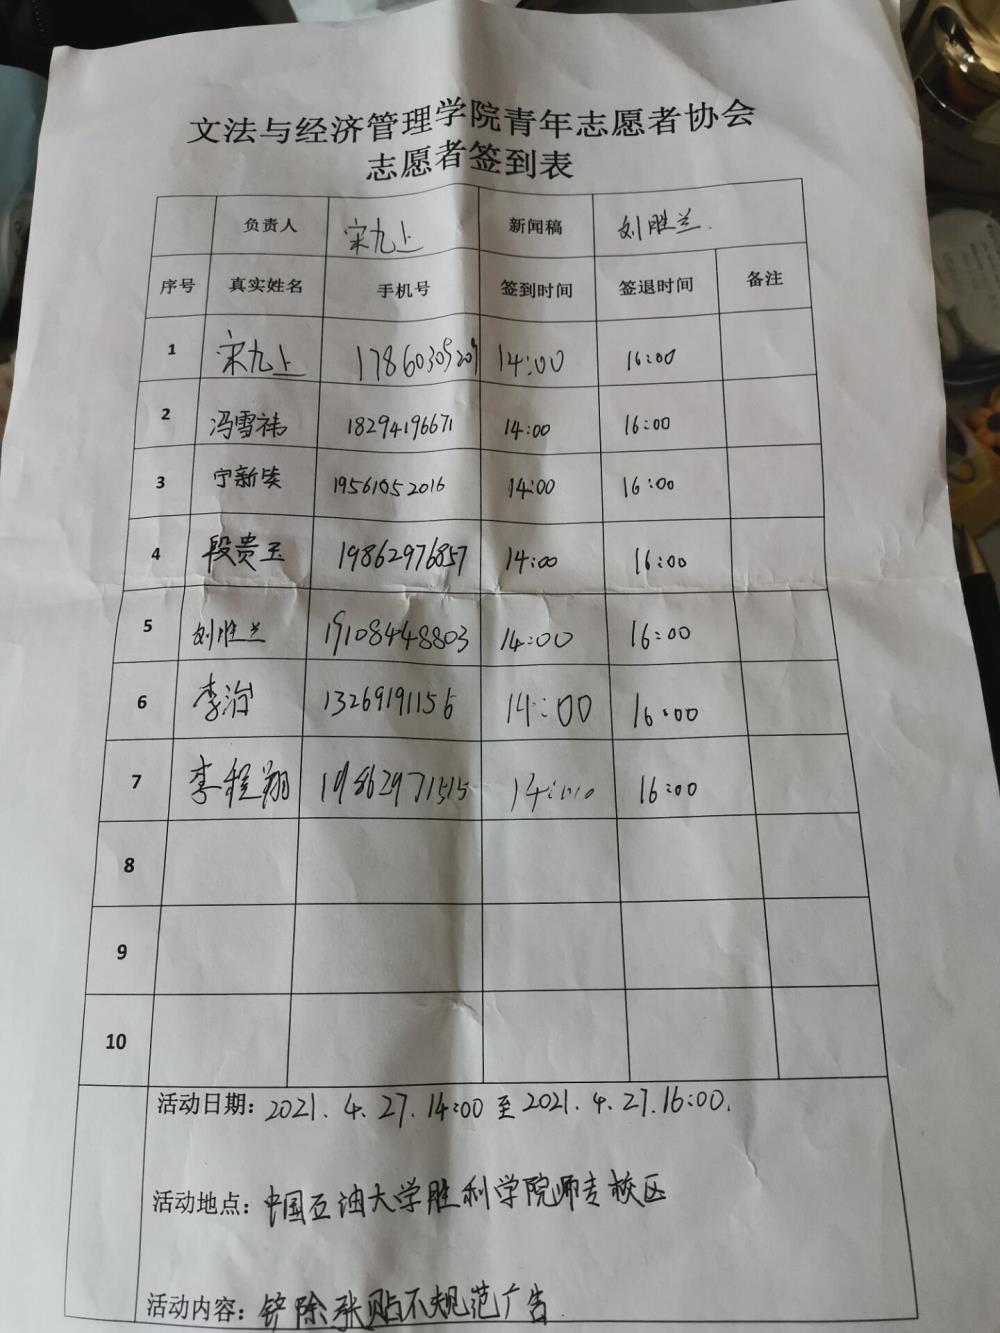 文法与经济管理学院青年志愿者协会
志愿者签到表
负责人 宋九上 新闻稿 刘胜兰.
序号 真实姓名 手机号 签到时间 签退时间 备注
1 宋九上 17860305209 14:00 16:00
2 冯雪祎 18294196671 14:00 16:00
3 宁新 19561052016 14:00 16:00
4 段贵玉 19862976857 14:00 16:00
5 刘胜兰 19108448803 14:00 16:00
6 李治 13269191156 14:00 16:00
7 李程翔 19862971515 14:00 16:00
8
9
10
活动日期: 2021. 4. 27. 14:00 至 2021. 4. 27. 16:00.
活动地点: 中国石油大学胜利学院师专校区
活动内容: 铲除张贴不规范广告.